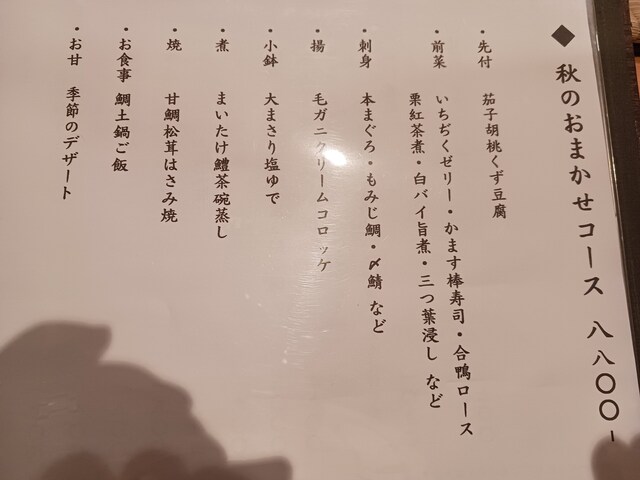 ◆ 秋のおまかせコース 八八〇〇ー
・先付 茄子胡桃くず豆腐
・前菜 いちぢくゼリー・かます棒寿司・合鴨ロース
栗紅茶煮・白バイ旨煮・三つ葉浸し など
・刺身 本まぐろ・もみじ鯛・〆鯖 など
・揚 毛ガニクリームコロッケ
・小鉢 大まさり塩ゆで
・煮 まいたけ鱧茶碗蒸し
・焼 甘鯛松茸はさみ焼
・お食事 鯛土鍋ご飯
・お甘 季節のデザート